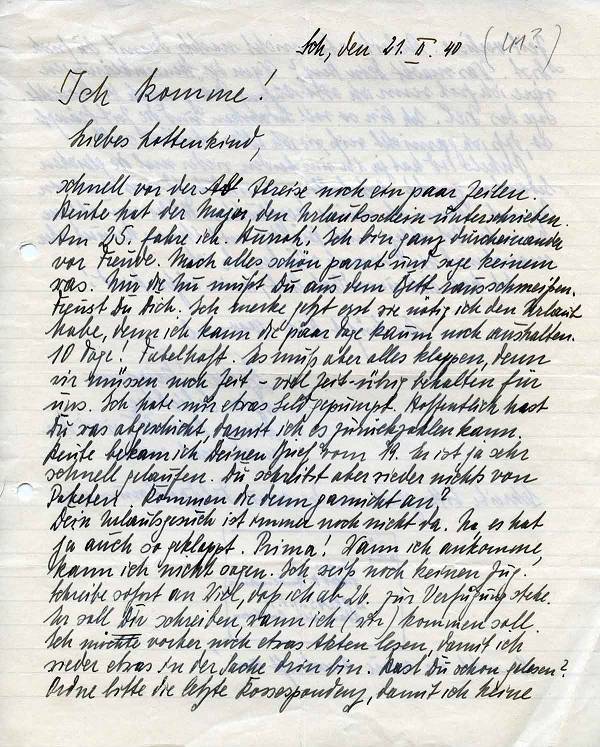 Sch, den 21. II. 40 (41?)
Ich komme!
Liebes Lottenkind,
schnell vor der Abreise noch ein paar Zeilen.
Heute hat der Major den Urlaubsschein unterschrieben.
Am 25. fahre ich. Hurrah! Ich bin ganz durcheinander
vor Freude. Mach alles schön parat und sage keinem
was. Nur die Nu mußt Du aus dem Bett rausschmeißen.
Freust Du Dich. Ich merke jetzt erst wie nötig ich den Urlaub
habe, denn ich kann die paar Tage kaum noch aushalten.
10 Tage! Fabelhaft. Es muß aber alles klappen, denn
wir müssen noch Zeit - viel Zeit - übrig behalten für
uns. Ich habe mir etwas Geld gepumpt. Hoffentlich hast
Du was abgeschickt, damit ich es zurückzahlen kann.
Heute bekam ich Deinen Brief vom 19. Er ist ja sehr
schnell gelaufen. Du schreibst aber wieder nichts von
Paketen! Kommen die denn garnicht an?
Dein Urlaubsgesuch ist immer noch nicht da. Na, es hat
ja auch so geklappt. Prima! Wann ich ankomme,
kann ich nicht sagen. Ich weiß noch keinen Zug.
Schreibe sofort an, daß ich ab 26. zur Verfügung stehe.
Er soll Dir schreiben, wann ich kommen soll.
Ich möchte vorher noch etwas Akten lesen, damit ich
wieder etwas in der Sache drin bin. Hast Du schon gelesen?
Ordne bitte die letzte Korrespondenz, damit ich keine